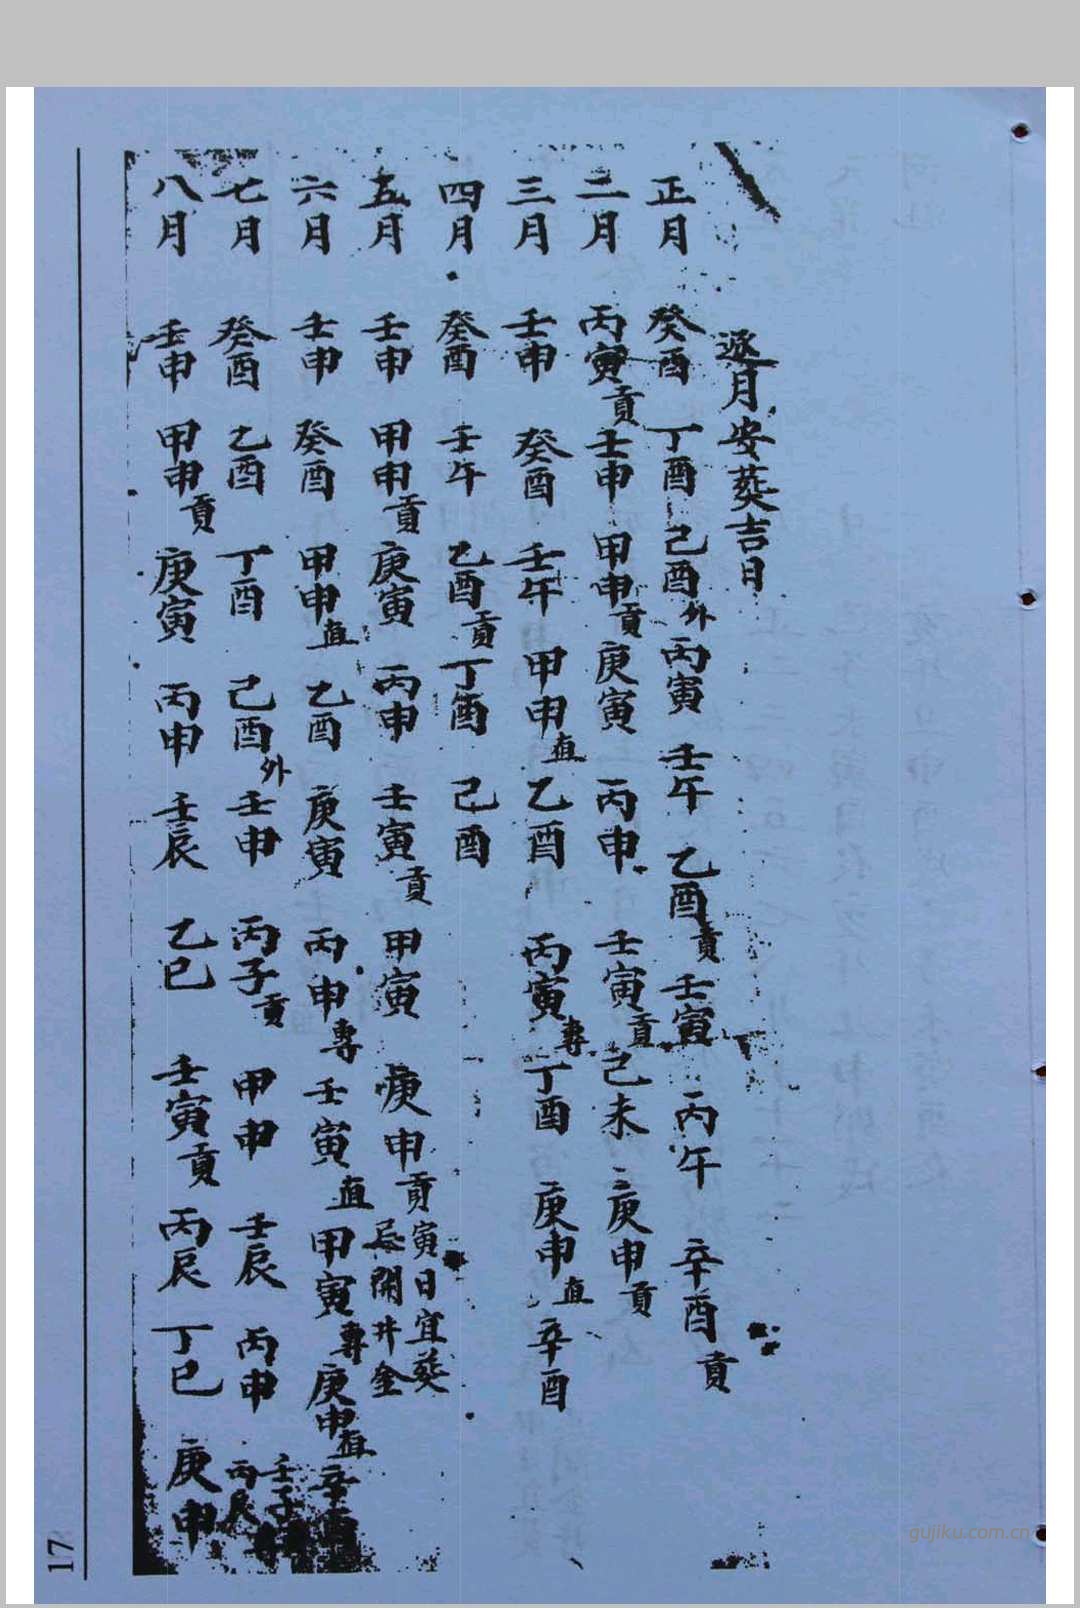 逐月安葬吉日
正月 癸酉 丁酉 己酉外 丙寅 壬午 乙酉貢 壬寅 丙午 辛酉貢
二月 丙寅貢 壬申 甲申貢 庚寅 丙申 壬寅貢 己未 庚申貢
三月 壬申 癸酉 壬午 甲申直 乙酉 丙寅專 丁酉 庚申直 辛酉
四月 癸酉 壬午 乙酉貢 丁酉 己酉
五月 壬申 甲申貢 庚寅 丙申 壬寅貢 甲寅 庚申貢 寅日宜葬忌開井金
六月 壬申 癸酉 甲申直 乙酉 庚寅 丙申專 壬寅直 甲寅專 庚申直 辛酉
七月 癸酉 乙酉 丁酉 己酉外 壬申 丙子貢 甲申 壬辰 丙申 壬子 丙辰
八月 壬申 甲申貢 庚寅 丙申 壬辰 乙巳 壬寅貢 丙辰 丁巳 庚申
17
gujiku.com.cn